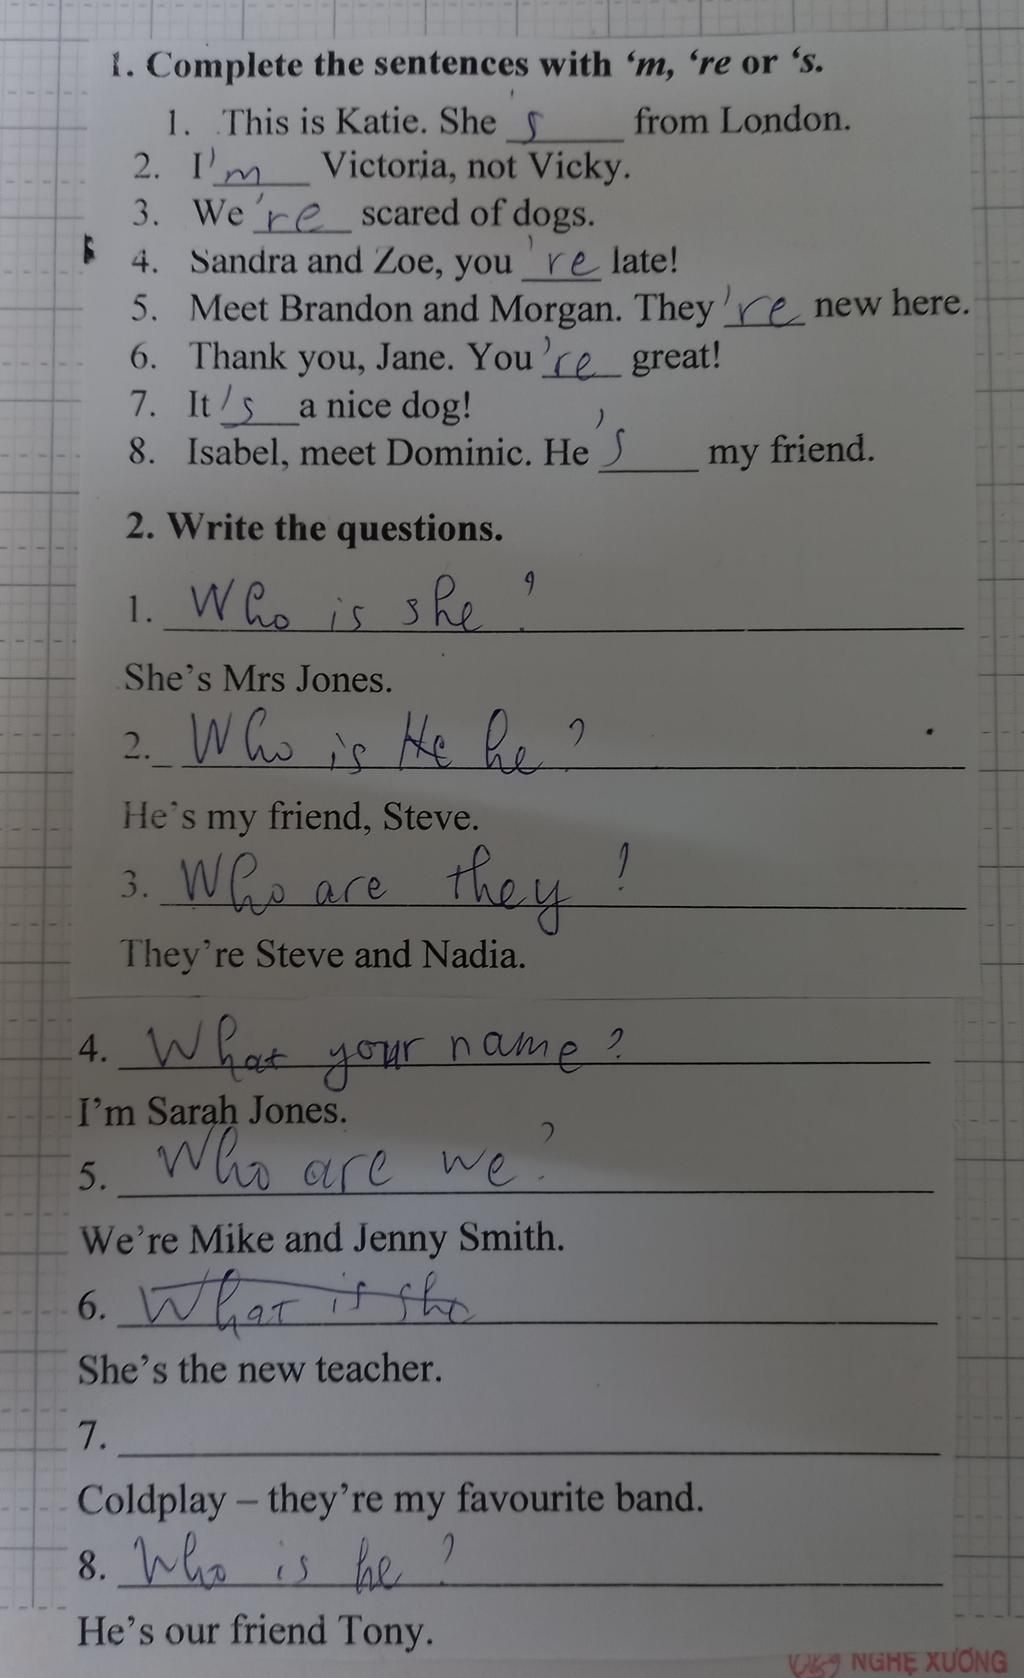 1. Complete the sentences with ‘m, ‘re or ‘s.
1. This is Katie. She 's from London.
2. I'm Victoria, not Vicky.
3. We 're scared of dogs.
4. Sandra and Zoe, you 're late!
5. Meet Brandon and Morgan. They 're new here.
6. Thank you, Jane. You 're great!
7. It 's a nice dog!
8. Isabel, meet Dominic. He 's my friend.
2. Write the questions.
1. Who is she?
She’s Mrs Jones.
2. Who is He he?
He’s my friend, Steve.
3. Who are they?
They’re Steve and Nadia.
4. What your name?
I’m Sarah Jones.
5. Who are we?
We’re Mike and Jenny Smith.
6. What is she
She’s the new teacher.
7.
Coldplay – they’re my favourite band.
8. Who is he?
He’s our friend Tony.
NGHẸ XƯƠNG